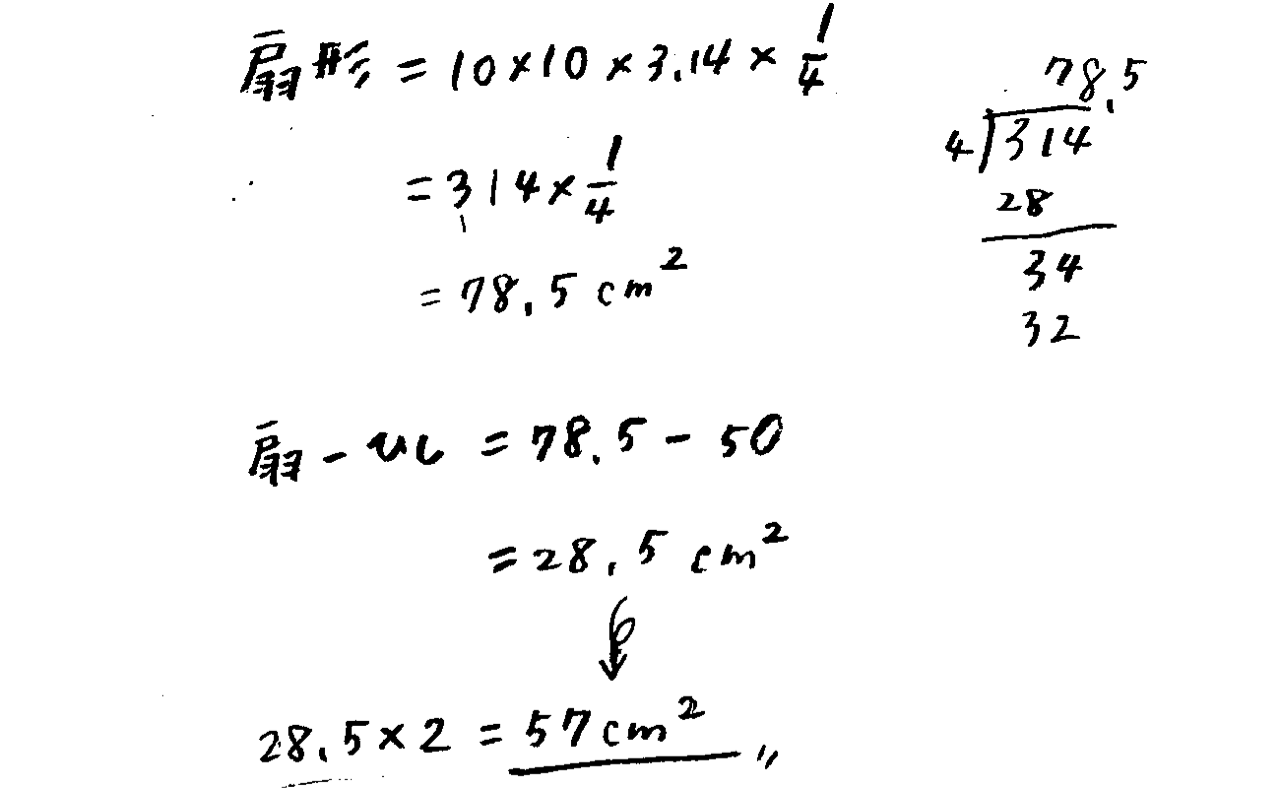 扇形 = 10×10×3.14×1/4
= 314×1/4
= 78.5 cm²
78.5
4)314
28
34
32
= 78.5 - 50
= 28.5 cm²
28.5×2 = 57 cm²